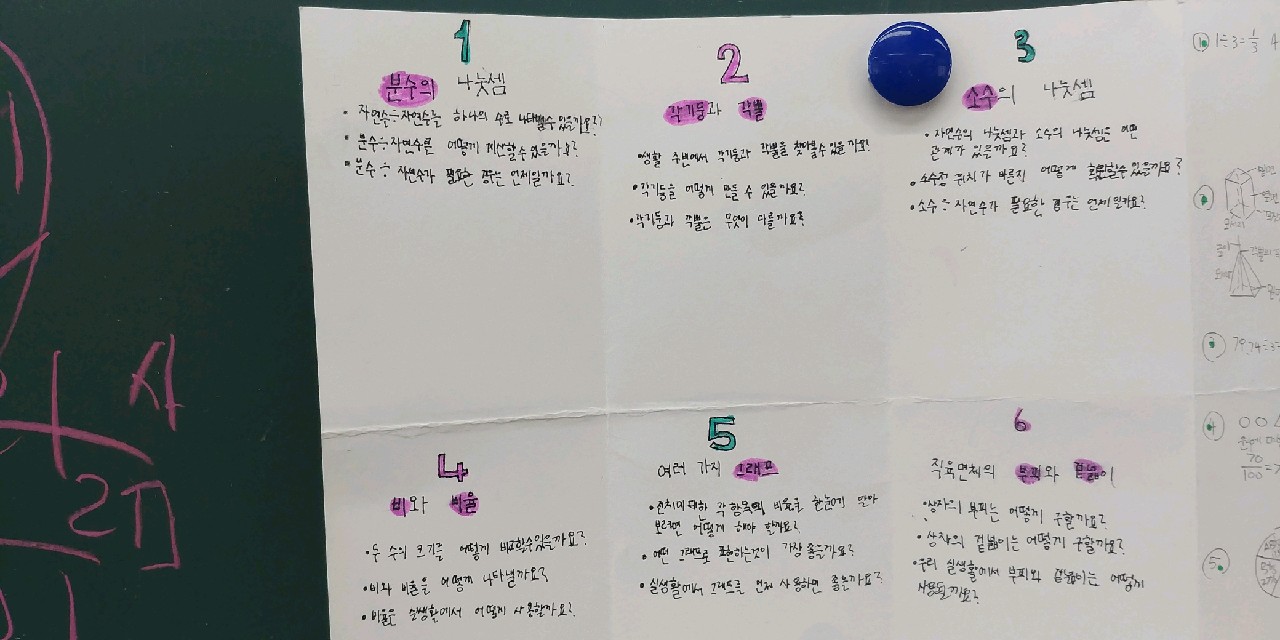 1
분수의 나눗셈
• 자연수÷자연수를 하나의 수로 나타낼수 있을까요?
• 분수÷자연수를 어떻게 계산할수 있을까요?
• 분수 ÷ 자연수가 필요한 경우는 언제일까요?
2
각기둥과 각뿔
•생활 주변에서 각기둥과 각뿔을 찾아볼수 있을까요?
•각기둥을 어떻게 만들 수 있을까요?
•각기둥과 각뿔은 무엇이 다를까요?
3
소수의 나눗셈
• 자연수의 나눗셈과 소수의 나눗셈은 어떤
관계가 있을까요?
• 소수점 위치가 바른지 어떻게 확인할수 있을까요?
• 소수 ÷ 자연수가 필요한 경우는 언제일까요?
4
비와 비율
• 두 수의 크기를 어떻게 비교할수있을까요?
• 비와 비율을 어떻게 나타낼까요?
• 비율은 실생활에서 어떻게 사용할까요?
5
여러 가지 그래프
• 전체에 대한 각 항목의 비율을 한눈에 알아
보려면 어떻게 해야 할까요?
• 어떤 그래프로 표현하는것이 가장 좋을까요?
• 실생활에서 그래프를 언제 사용하면 좋을까요?
6
직육면체의 부피와 겉넓이
• 상자의 부피는 어떻게 구할까요?
• 상자의 겉넓이는 어떻게 구할까요?
• 우리 실생활에서 부피와 겉넓이는 어떻게
사용될까요?
1 1÷3=1/3
3 79.74÷3=
4 00
70/100
5.